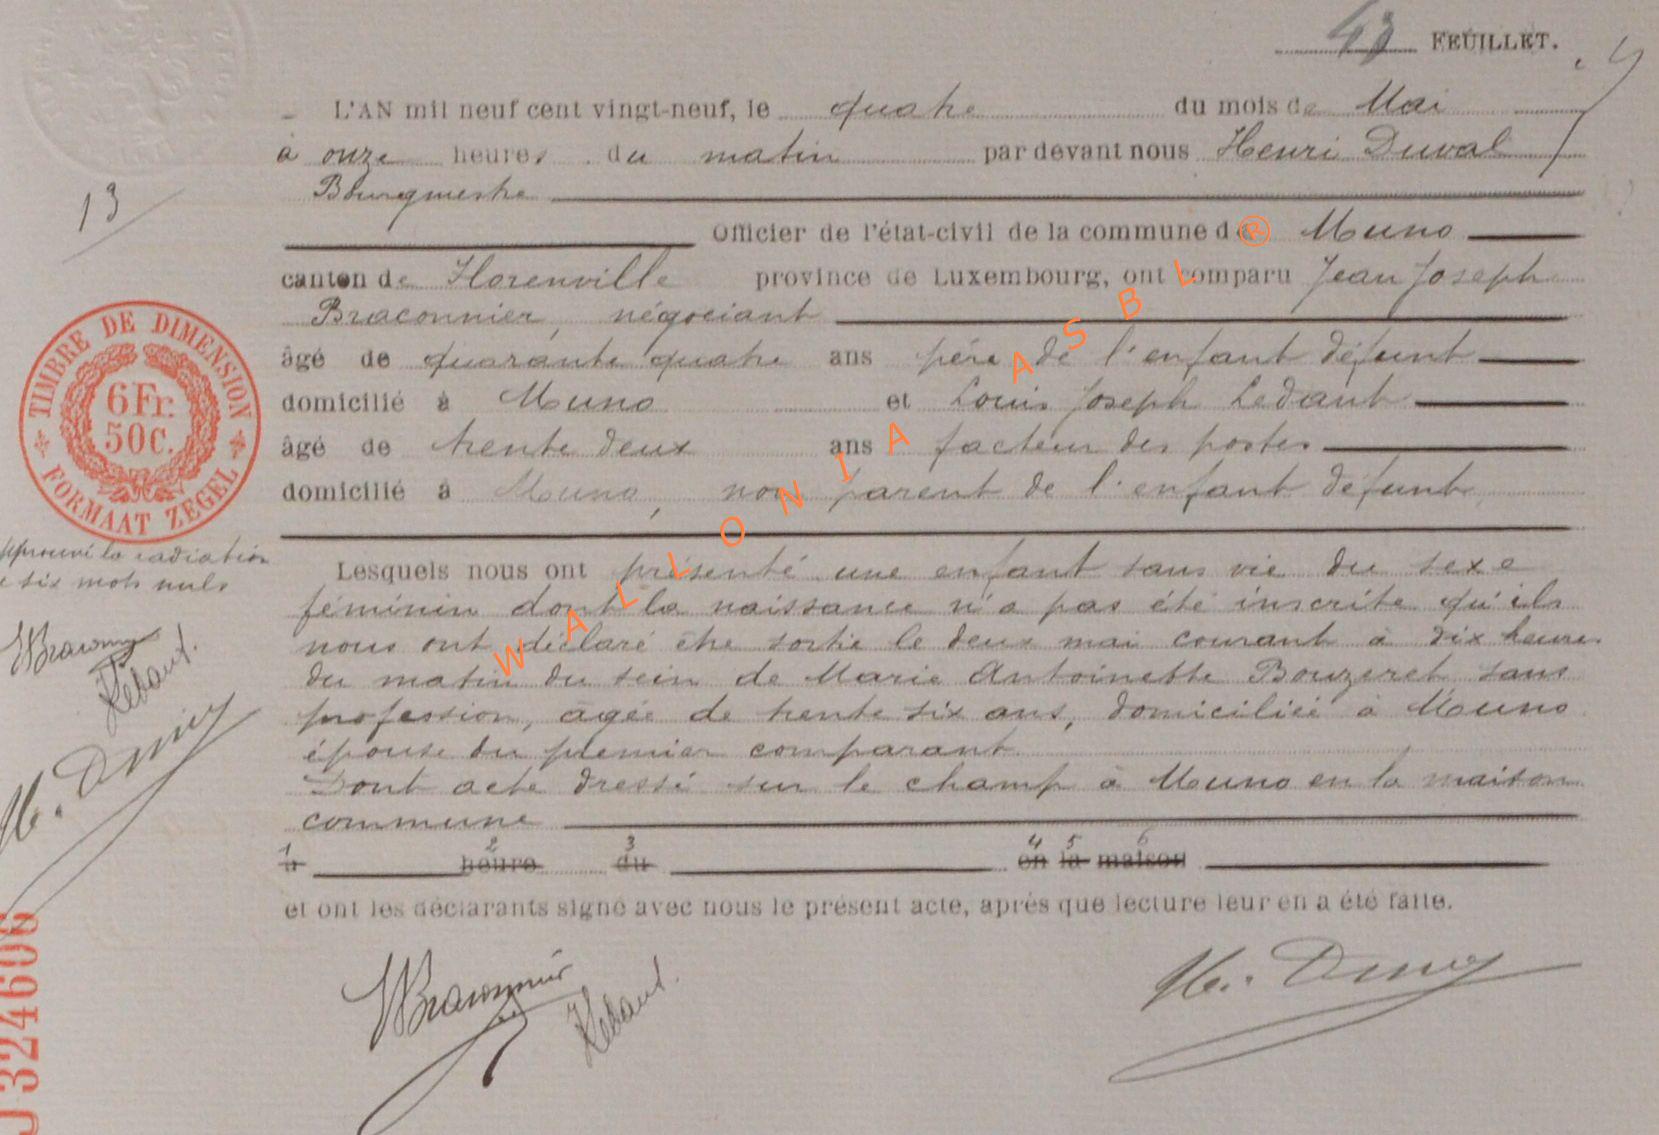 43 FEUILLET.
L'AN mil neuf cent vingt-neuf, le quatre du mois de Mai
à onze heures du matin par devant nous Henri Duval
Bourgmestre
13
Officier de l'état-civil de la commune de Muno
canton de Florenville province de Luxembourg, ont comparu Jean Joseph
Braconnier, négociant
âgé de quarante quatre ans père de l'enfant défunt
domicilié à Muno et Louis Joseph Ledant
âgé de trente deux ans facteur des postes
domicilié à Muno, non parent de l'enfant défunt
TIMBRE DE DIMENSION
6Fr.
50c.
FORMAAT ZEGEL
Approuvé la radiation
de six mots nuls
Lesquels nous ont présenté une enfant sans vie du sexe
féminin dont la naissance n'a pas été inscrite qu'ils
nous ont déclaré être sortie le deux mai courant à dix heures
du matin du sein de Marie Antoinette Bouzeret sans
profession, âgée de trente six ans, domiciliée à Muno
épouse du premier comparant
Dont acte dressé sur le champ à Muno en la maison
commune
1 2 3 4 5 6
à heure du en la maison
et ont les déclarants signé avec nous le présent acte, après que lecture leur en a été faite.
Braconnier
324606
WALLONIA ASBL ®